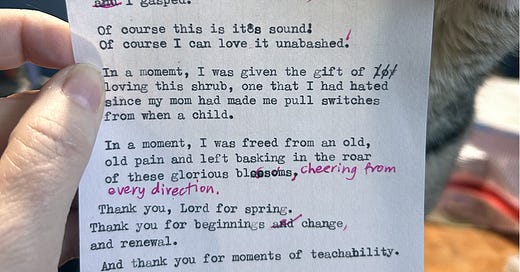 and I gasped.
Of course this is it8s sound!
Of course I can love it unabashed!
In a momemt, I was given the gift of
loving this shrub, one that I had hated
since my mom had made me pull switches
from when a child.
In a moment, I was freed from an old,
old pain and left basking in the roar
of these glorious blossoms, cheering from
every direction.
Thank you, Lord for spring.
Thank you for beginnings and change,
and renewal.
And thank you for moments of teachability.